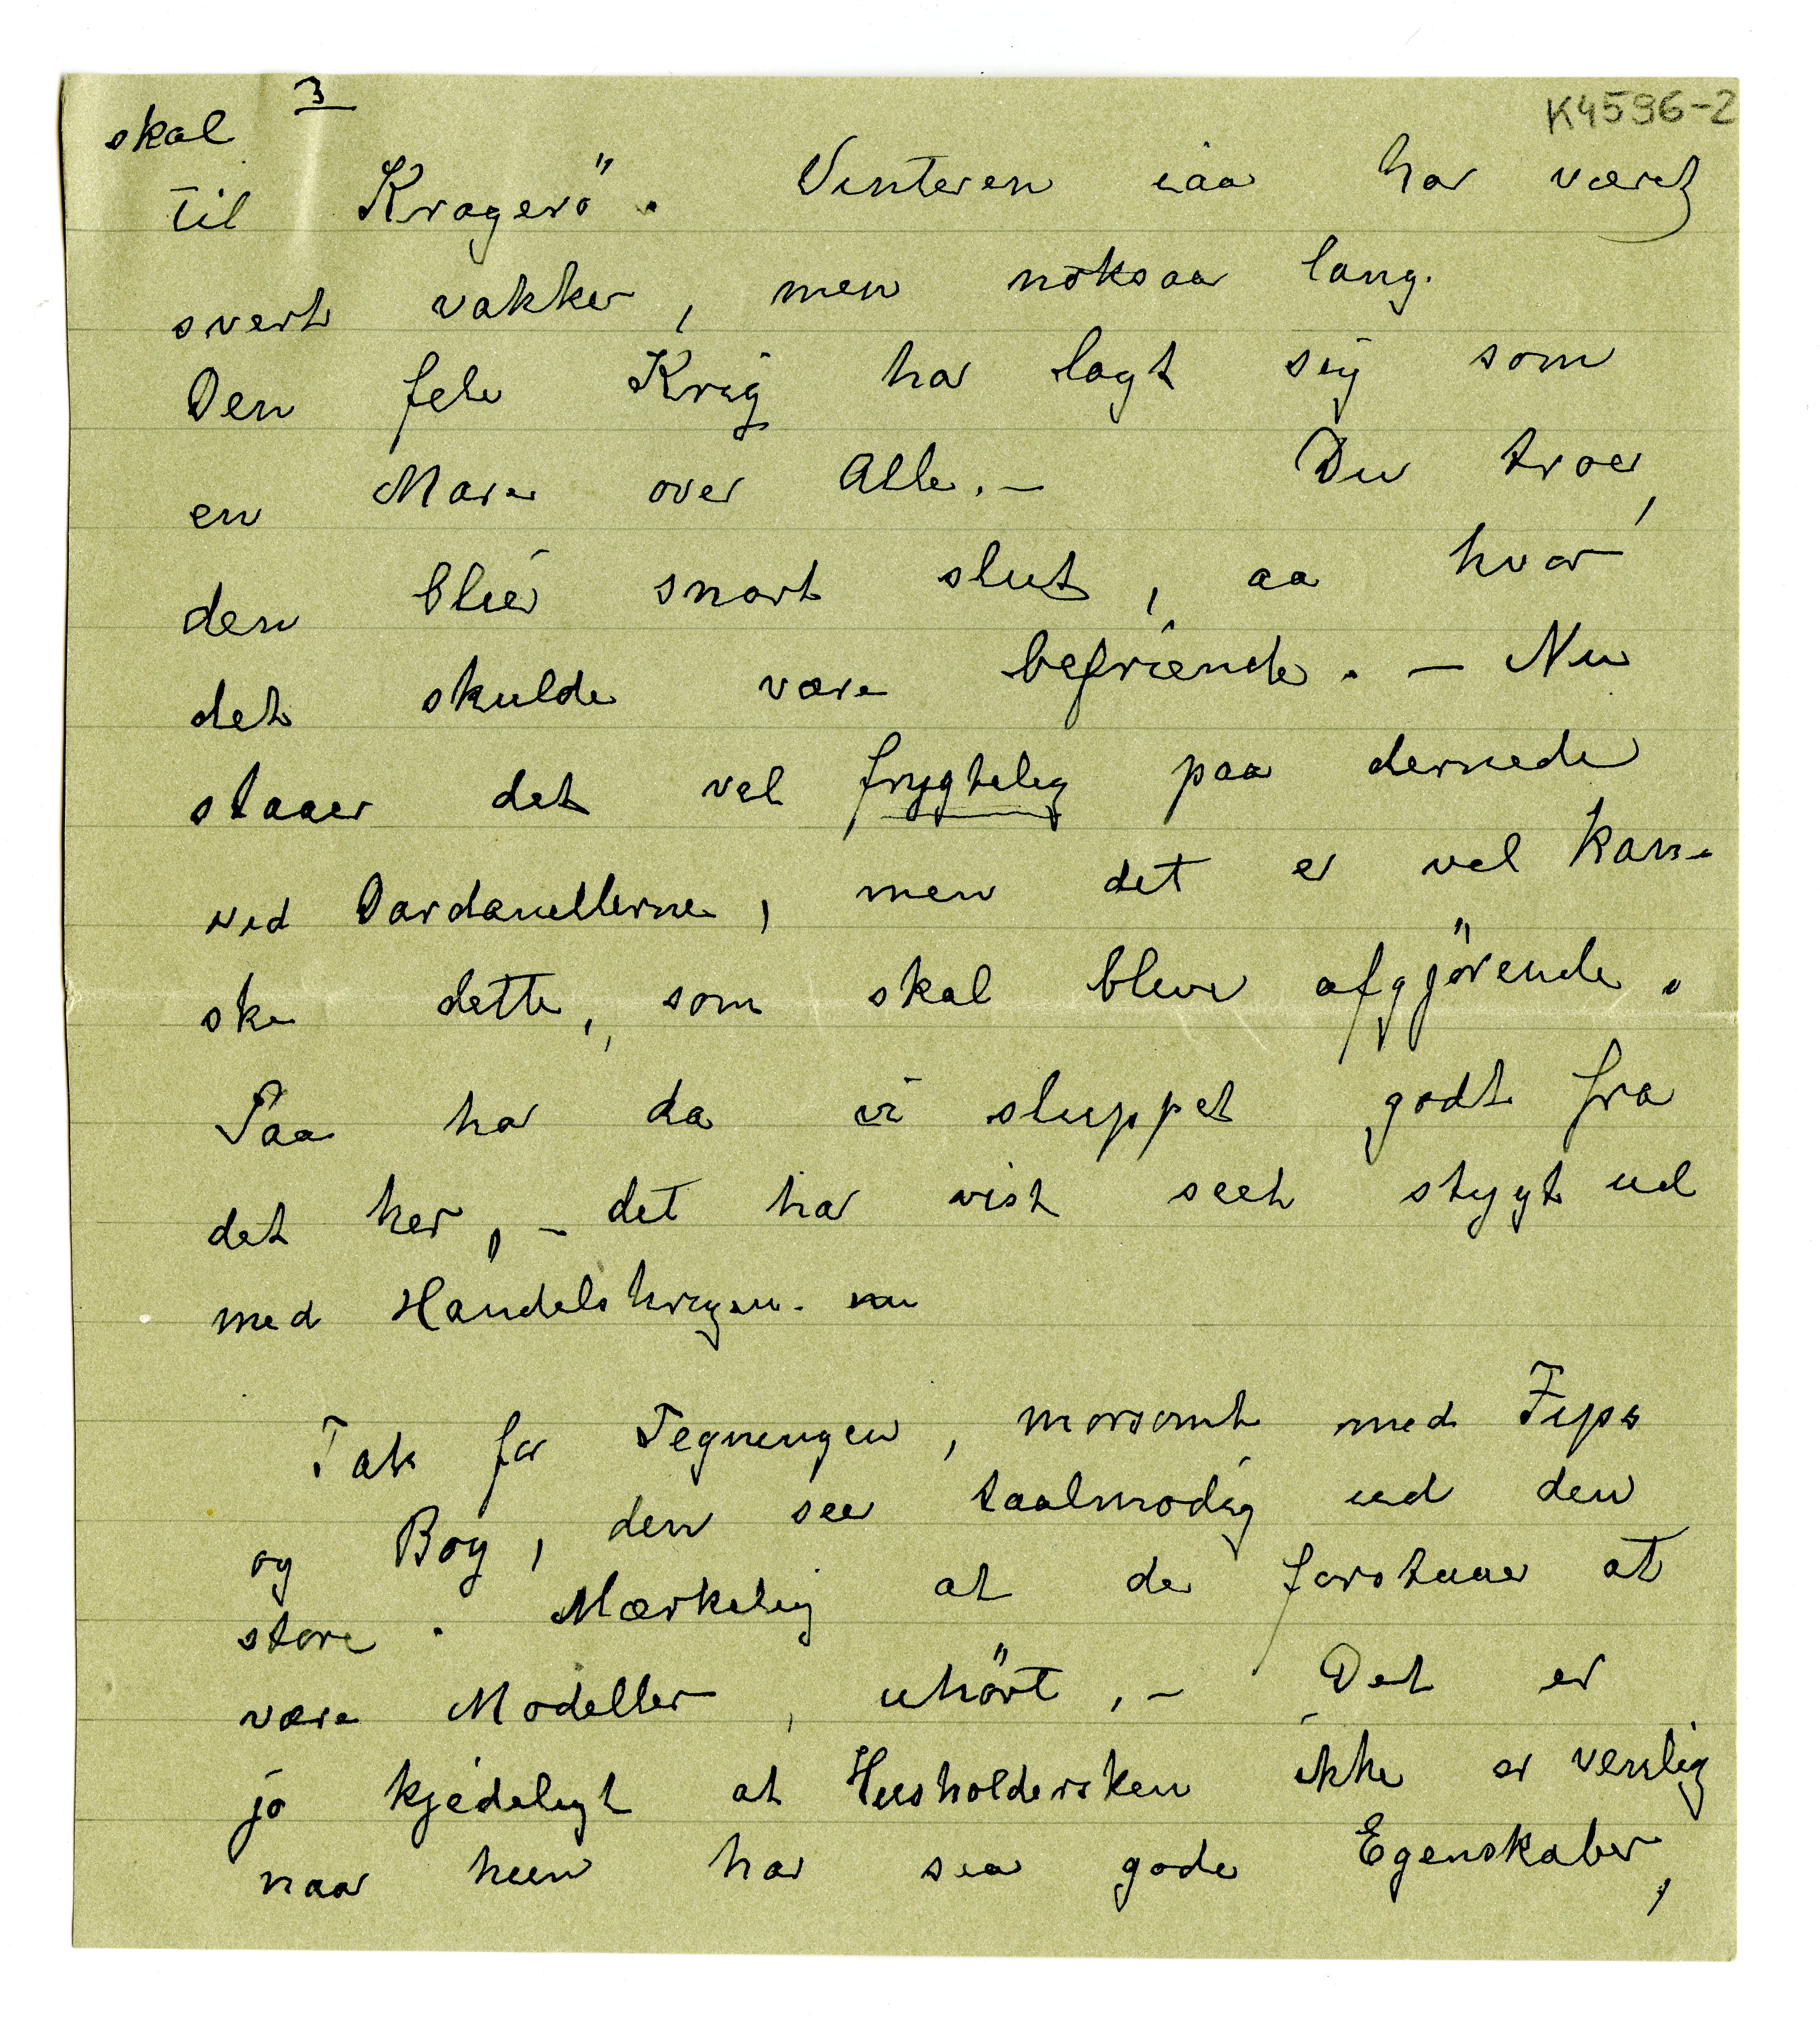 3
K4596-2
skal
til Kragerö. Vinteren iaa har været
svert vakker, men noksaa lang.
Den fele Krig har lagt sig som
en Mare over Alle. — Du troer,
den blier snart slut, aa hvor
det skulde være befriende. — Nu
staaer det vel frygtelig paa dernede
ved Dardanellerne, men det er vel kan-
ske dette, som skal blive afgjörende.
Saa har da vi sluppet godt fra
det her, – det har vist seet stygt ud
med Handelskrigen. nu
Tak for Tegningen, morsomt med Fips
og Boy, den seer taalmodig ud den
store. Mærkelig at de forstaaer at
være Modeller, uhört, – Det er
jo kjedeligt at Husholdersken ikke er venlig
naar hun har saa gode Egenskaber,